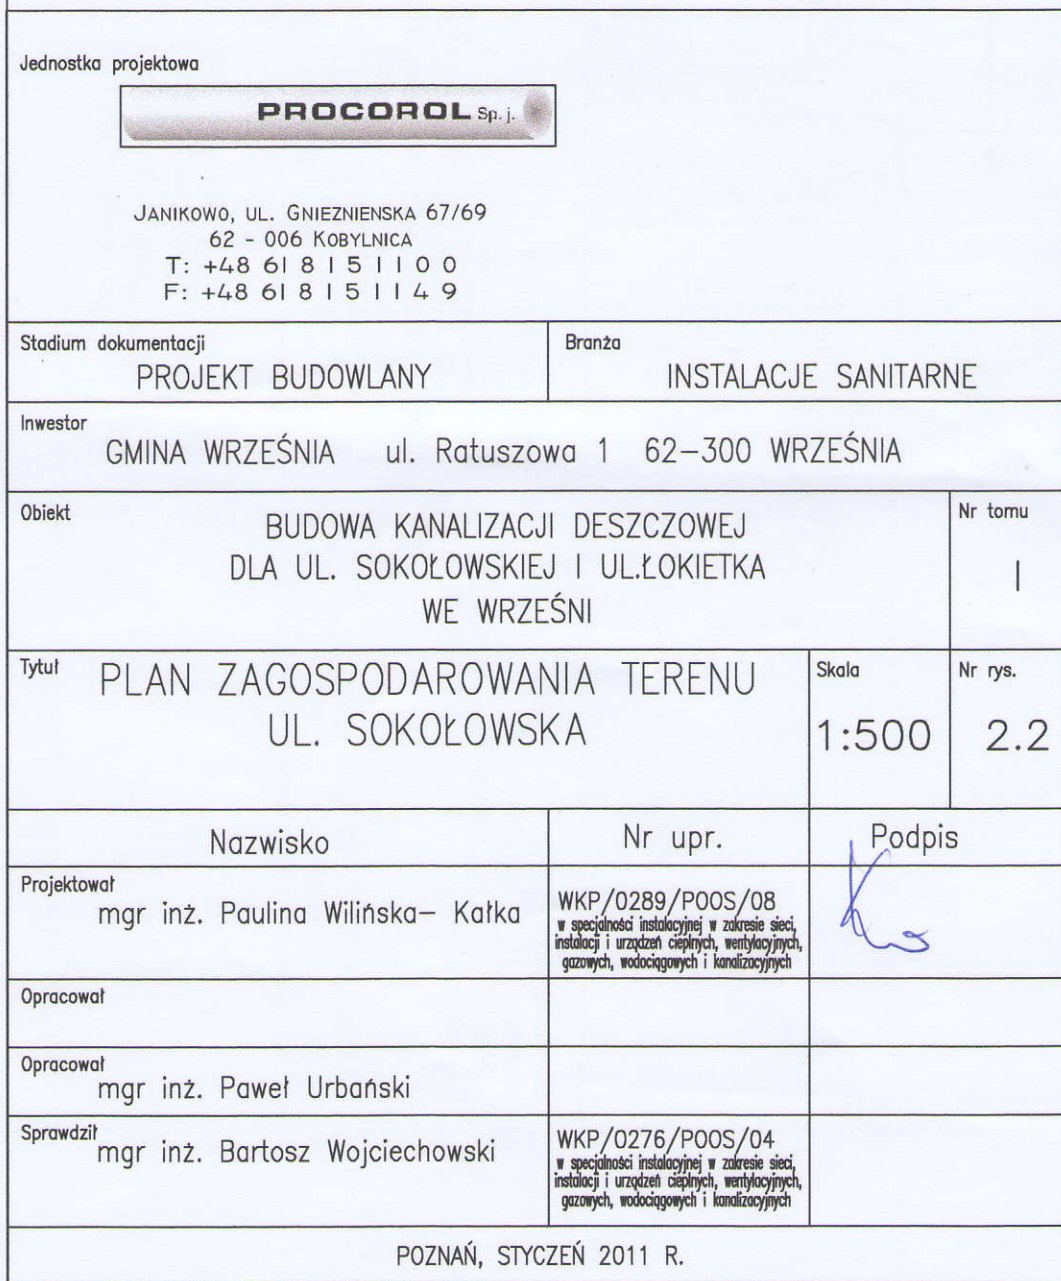 Jednostka projektowa
PROCOROL Sp. j.
JANIKOWO, UL. GNIEZNIENSKA 67/69
62 - 006 KOBYLNICA
T: +48 61 8 1 5 1 1 0 0
F: +48 61 8 1 5 1 1 4 9
Stadium dokumentacji
PROJEKT BUDOWLANY
Branża
INSTALACJE SANITARNE
Inwestor
GMINA WRZEŚNIA ul. Ratuszowa 1 62-300 WRZEŚNIA
Obiekt
BUDOWA KANALIZACJI DESZCZOWEJ
DLA UL. SOKOŁOWSKIEJ I UL.ŁOKIETKA
WE WRZEŚNI
Nr tomu
I
Tytuł
PLAN ZAGOSPODAROWANIA TERENU
UL. SOKOŁOWSKA
Skala
1:500
Nr rys.
2.2
Nazwisko
Nr upr.
Podpis
Projektował
mgr inż. Paulina Wilińska- Kałka
WKP/0289/POOS/08
w specjalności instalacyjnej w zakresie sieci,
instalacji i urządzeń cieplnych, wentylacyjnych,
gazowych, wodociągowych i kanalizacyjnych
Opracował
Opracował
mgr inż. Paweł Urbański
Sprawdził
mgr inż. Bartosz Wojciechowski
WKP/0276/POOS/04
w specjalności instalacyjnej w zakresie sieci,
instalacji i urządzeń cieplnych, wentylacyjnych,
gazowych, wodociągowych i kanalizacyjnych
POZNAŃ, STYCZEŃ 2011 R.